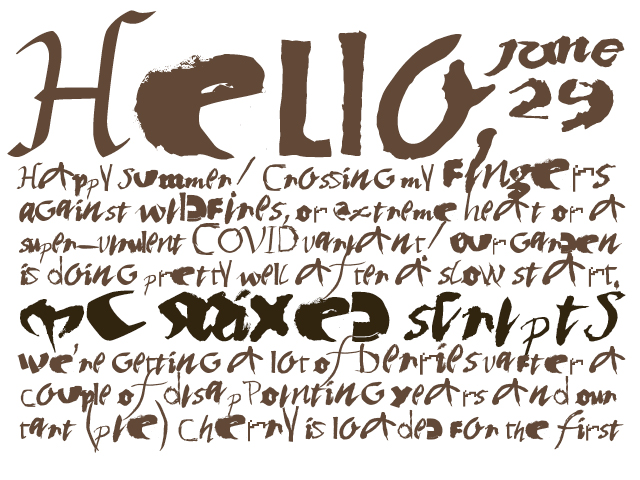 Hello, June
29
Happy summer! Crossing my fingers
against wildfires, or extreme heat or a
super-virulent COVID variant! Our garden
is doing pretty well after a slow start.
MC Mixed Scripts
We're getting a lot of berries after a
couple of disappointing years and our
tart (pie) cherry is loaded for the first